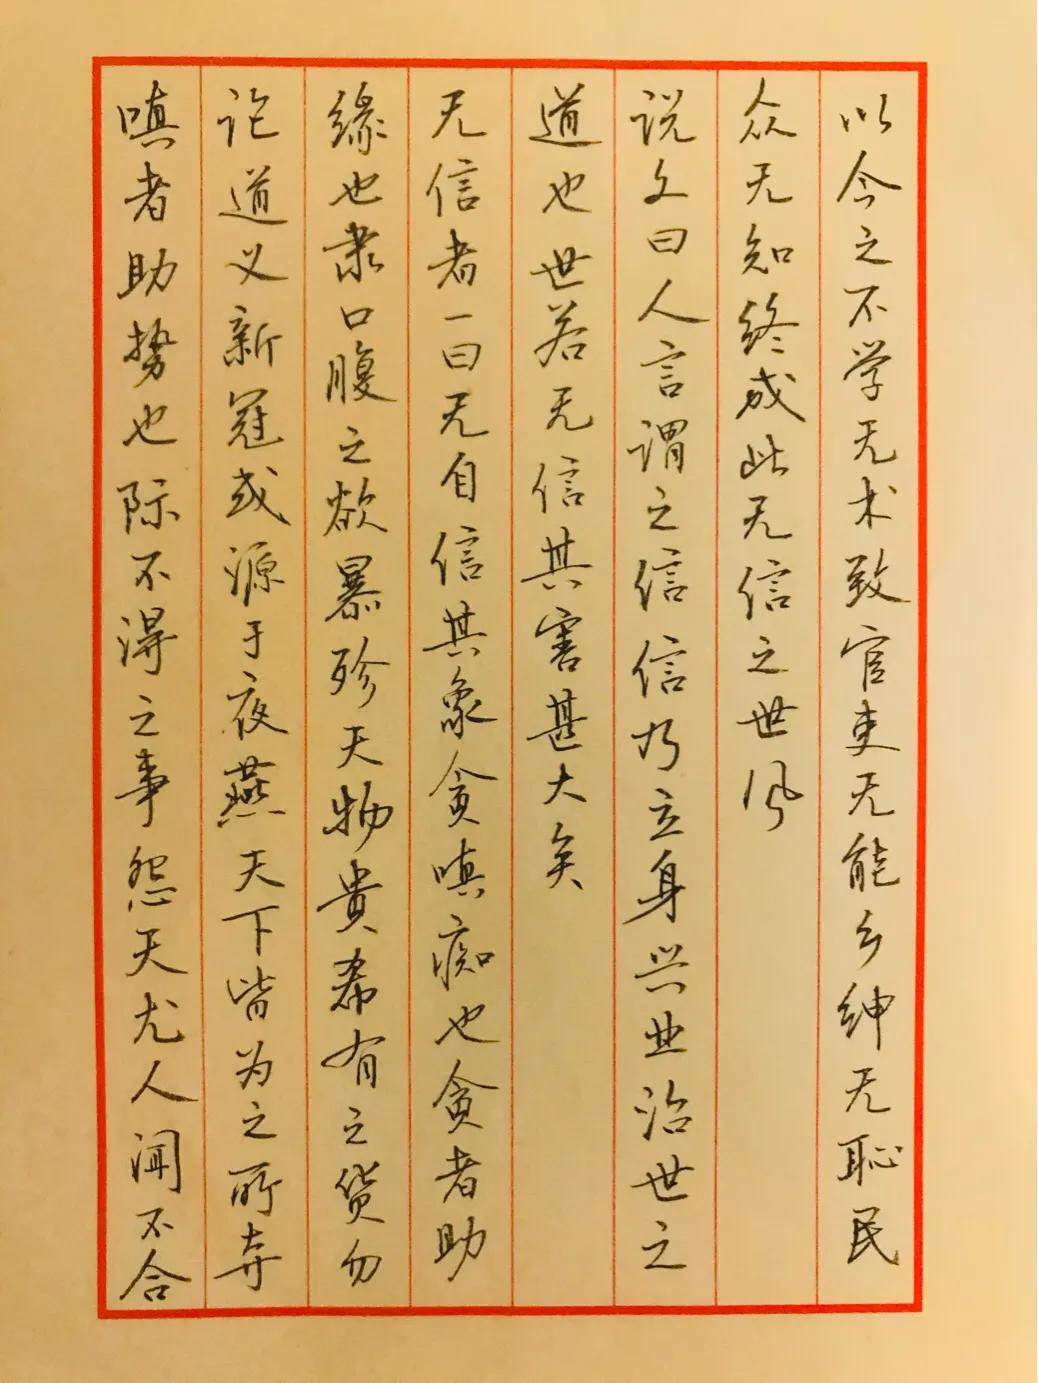 以今之不学无术致官吏无能乡绅无恥民
众无知终成此无信之世风
说文曰人言谓之信信乃立身兴业治世之
道也世若无信其害甚大矣
无信者一曰无自信其象贪嗔痴也贪者助
缘也隶口腹之欲暴殄天物贵希有之货勿
论道义新冠或源于夜燕天下皆为之所弃
嗔者助势也际不得之事怨天尤人闻不合